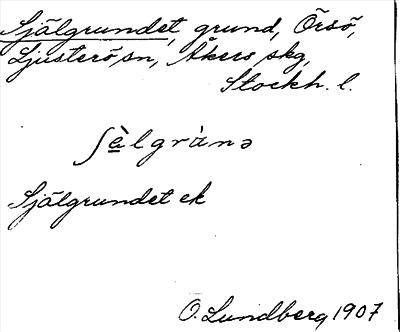 Själgrundet, grund, Örsö,
Ljusterö sn, Åkers skg,
Stockh. l.
ʃæ̀lgrùnə
Själgrundet ek
O. Lundberg 1907